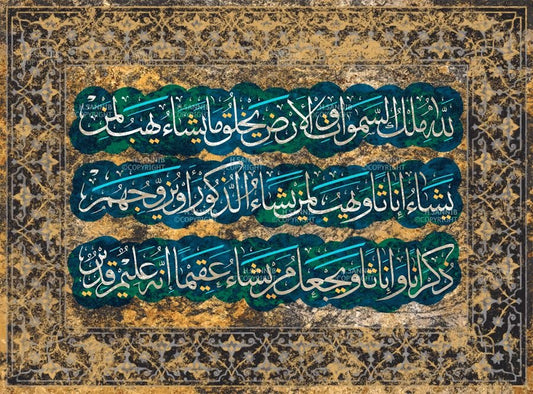 لله ملك السموات والأرض يخلق ما يشاء يهب لمن
يشاء إناثا ويهب لمن يشاء الذكور أو يزوجهم
ذكرانا وإناثا ويجعل من يشاء عقيما إنه عليم قدير